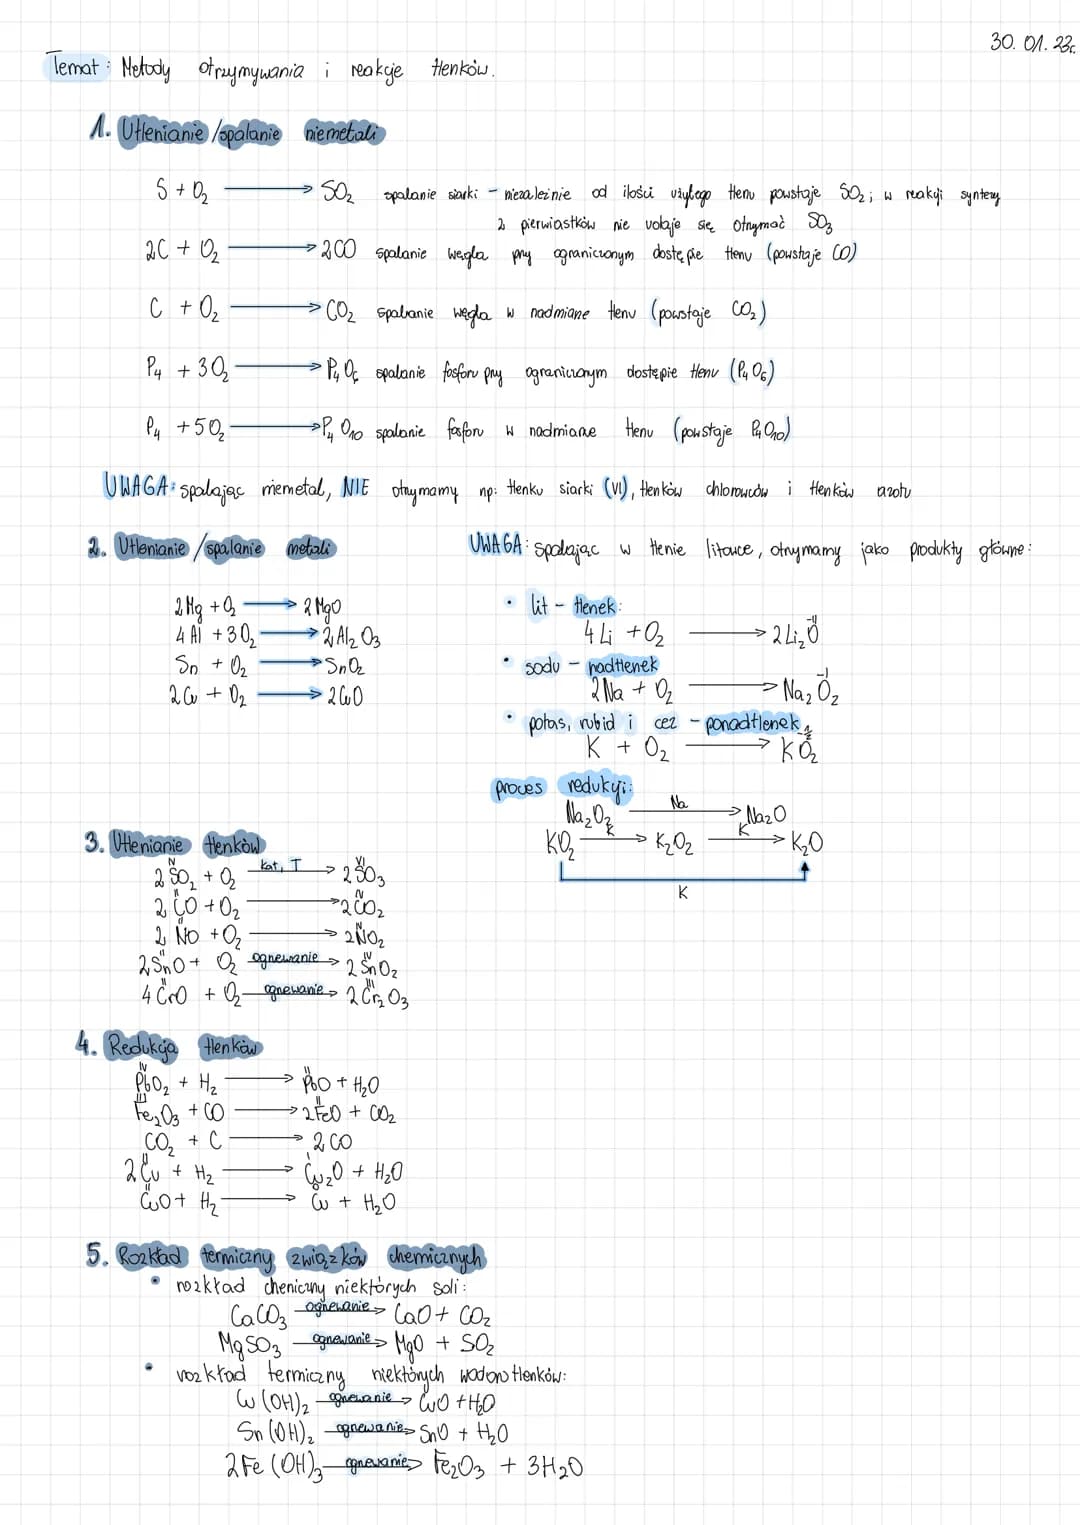 30. 01. 23r.
Temat: Metody otrzymywania i reakcje tlenków.
1. Utlenianie/spalanie niemetali
S + O₂ ⟶ SO₂ spalanie siarki - niezależnie od ilości użytego tlenu powstaje SO₂; w reakcji syntezy
z pierwiastków nie udaje się otrzymać SO₃
2C + O₂ ⟶ 2CO spalanie węgla przy ograniczonym dostępie tlenu (powstaje CO)
C + O₂ ⟶ CO₂ spalanie węgla w nadmiarze tlenu (powstaje CO₂)
P₄ + 3O₂ ⟶ P₄O₆ spalanie fosforu przy ograniczonym dostępie tlenu (P₄O₆)
P₄ + 5O₂ ⟶ P₄O₁₀ spalanie fosforu w nadmiarze tlenu (powstaje P₄O₁₀)
UWAGA: spalając niemetal, NIE otrzymamy np: tlenku siarki (VI), tlenków chlorowców i tlenków azotu
2. Utlenianie/spalanie metali
2Mg + O₂ ⟶ 2MgO
4Al + 3O₂ ⟶ 2Al₂O₃
Sn + O₂ ⟶ SnO₂
2Cu + O₂ ⟶ 2CuO
UWAGA: spalając w tlenie litowce, otrzymamy jako produkty główne:
• lit - tlenek:
4Li + O₂ ⟶ 2Li₂O -II
• sodu - nadtlenek
2Na + O₂ ⟶ Na₂O₂ -I
• potas, rubid i cez - ponadtlenek
K + O₂ ⟶ KO₂ -½
proces redukcji:
Na₂O₂ —Na⟶ Na₂O
KO₂ —K⟶ K₂O₂ —K⟶ K₂O
K
3. Utlenianie tlenków
IV VI
2SO₂ + O₂ —kat, T⟶ 2SO₃
II IV
2CO + O₂ ⟶ 2CO₂
II IV
2NO + O₂ ⟶ 2NO₂
II IV
2SnO + O₂ —ogrzewanie⟶ 2SnO₂
II III
4CrO + O₂ —ogrzewanie⟶ 2Cr₂O₃
4. Redukcja tlenków
IV II
PbO₂ + H₂ ⟶ PbO + H₂O
III II
Fe₂O₃ + CO ⟶ 2FeO + CO₂
CO₂ + C ⟶ 2CO
II I
2Cu + H₂ ⟶ Cu₂O + H₂O
II 0
CuO + H₂ ⟶ Cu + H₂O
5. Rozkład termiczny związków chemicznych
• rozkład chemiczny niektórych soli:
CaCO₃ —ogrzewanie⟶ CaO + CO₂
MgSO₃ —ogrzewanie⟶ MgO + SO₂
• rozkład termiczny niektórych wodorotlenków:
Cu(OH)₂ —ogrzewanie⟶ CuO + H₂O
Sn(OH)₂ —ogrzewanie⟶ SnO + H₂O
2Fe(OH)₃ —ogrzewanie⟶ Fe₂O₃ + 3H₂O